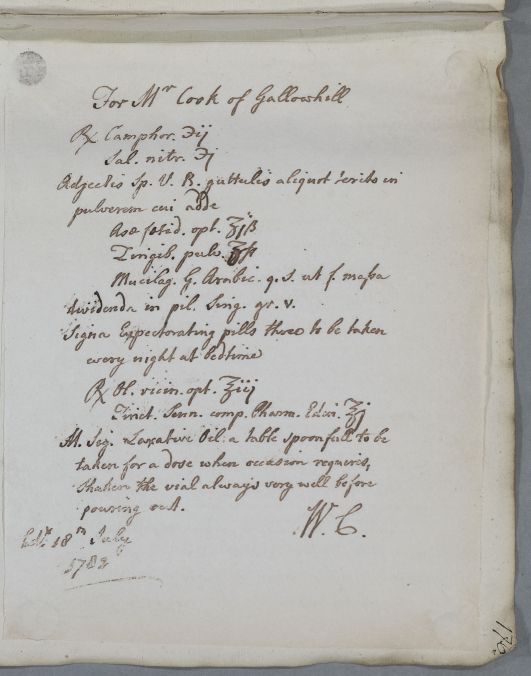 For Mr Cook of Gallowhill
℞ Camphor. ℈ij
Sal. nitr. ℈j
Adjectis Sp. V. R. guttulis aliquot terito in
pulverem cui adde
Asæ fœtid. opt. ʒjß
Zingib. pulv. ʒß
Mucilag. G. Arabic. q. s. ut f. massa
dividenda in pil. sing. gr. v.
Signa Expectorating pills three to be taken
every night at bedtime
℞ Ol. ricin. opt. ℥iij
Tinct. Senn. comp. Pharm. Edin. ℥j
M. Sig. Laxative Oil: a table spoonfull to be
taken for a dose when occasion requires,
Shaken the vial always very well before
pouring out.
W. C.
Edr. 18th July
178